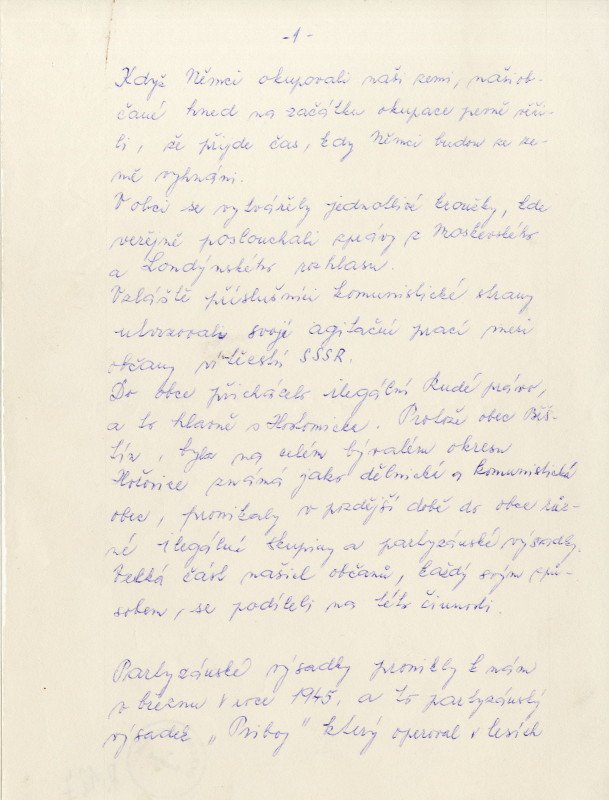 -1-
Když Němci okupovali naši zemi, naši ob-
čané hned na začátku okupace pevně věři-
li, že přijde čas, kdy Němci budou ze ze-
mě vyhnáni.
V obci se vytvářely jednotlivé kroužky, kde
veřejně poslouchali zprávy z Moskevského
a Londýnského rozhlasu.
Vzláště příslušníci komunistické strany
utvrzovali svojí agitační prací mezi
občany vítězství SSSR.
Do obce přicházelo ilegální Rudé právo,
a to hlavně s Hostomicka. Protože obec Běš-
tín, byla na celém bývalém okresu
Hořovice známá jako dělnická a komunistická
obec, pronikaly v pozdější době do obce růz-
né ilegální skupiny a partyzánské výsadky.
Velká část našich občanů, každý svým způ-
sobem, se podíleli na této činnosti.
Partyzánské výsadky pronikly k nám
v březnu v roce 1945, a to partyzánský
výsadek „Priboj" který operoval v lesích